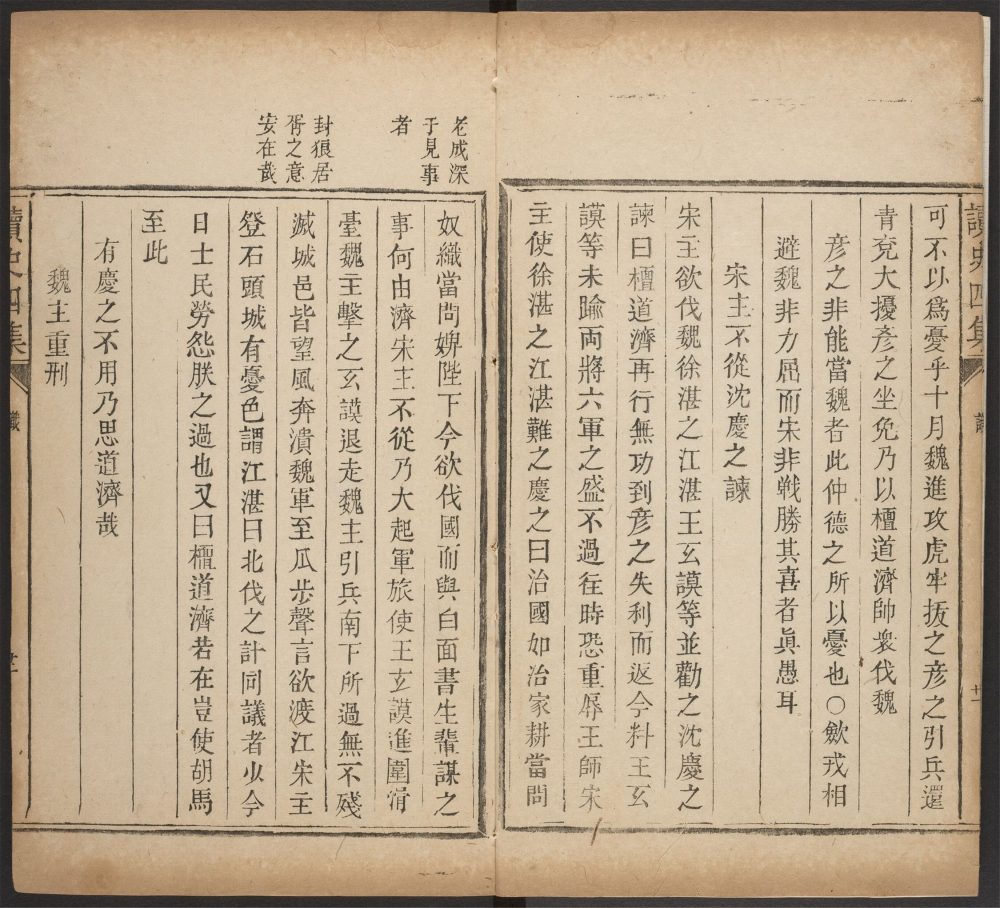 讀史四集
可不以爲憂乎十月魏進攻虎牢拔之彦之引兵還
青兖大擾彦之坐免乃以檀道濟帥衆伐魏
彦之非能當魏者此仲德之所以憂也○歛戎相
避魏非力屈而宋非戰勝其喜者眞愚耳
宋主不從沈慶之諫
宋主欲伐魏徐湛之江湛王玄謨等並勸之沈慶之
諫曰檀道濟再行無功到彦之失利而返今料王玄
謨等未踰両將六軍之盛不過徃時恐重辱王師宋
主使徐湛之江湛難之慶之曰治國如治家耕當問
老成深
于見事
者
封狼居
胥之意
安在哉
奴織當問婢陛下今欲伐國而與白面書生輩謀之
事何由濟宋主不從乃大起軍旅使王玄謨進圍滑
臺魏主擊之玄謨退走魏主引兵南下所過無不殘
滅城邑皆望風奔潰魏軍至瓜步聲言欲渡江宋主
登石頭城有憂色謂江湛曰北伐之計同議者少今
日士民勞怨朕之過也又曰檀道濟若在豈使胡馬
至此
有慶之不用乃思道濟哉
魏主重刑
讀史四集